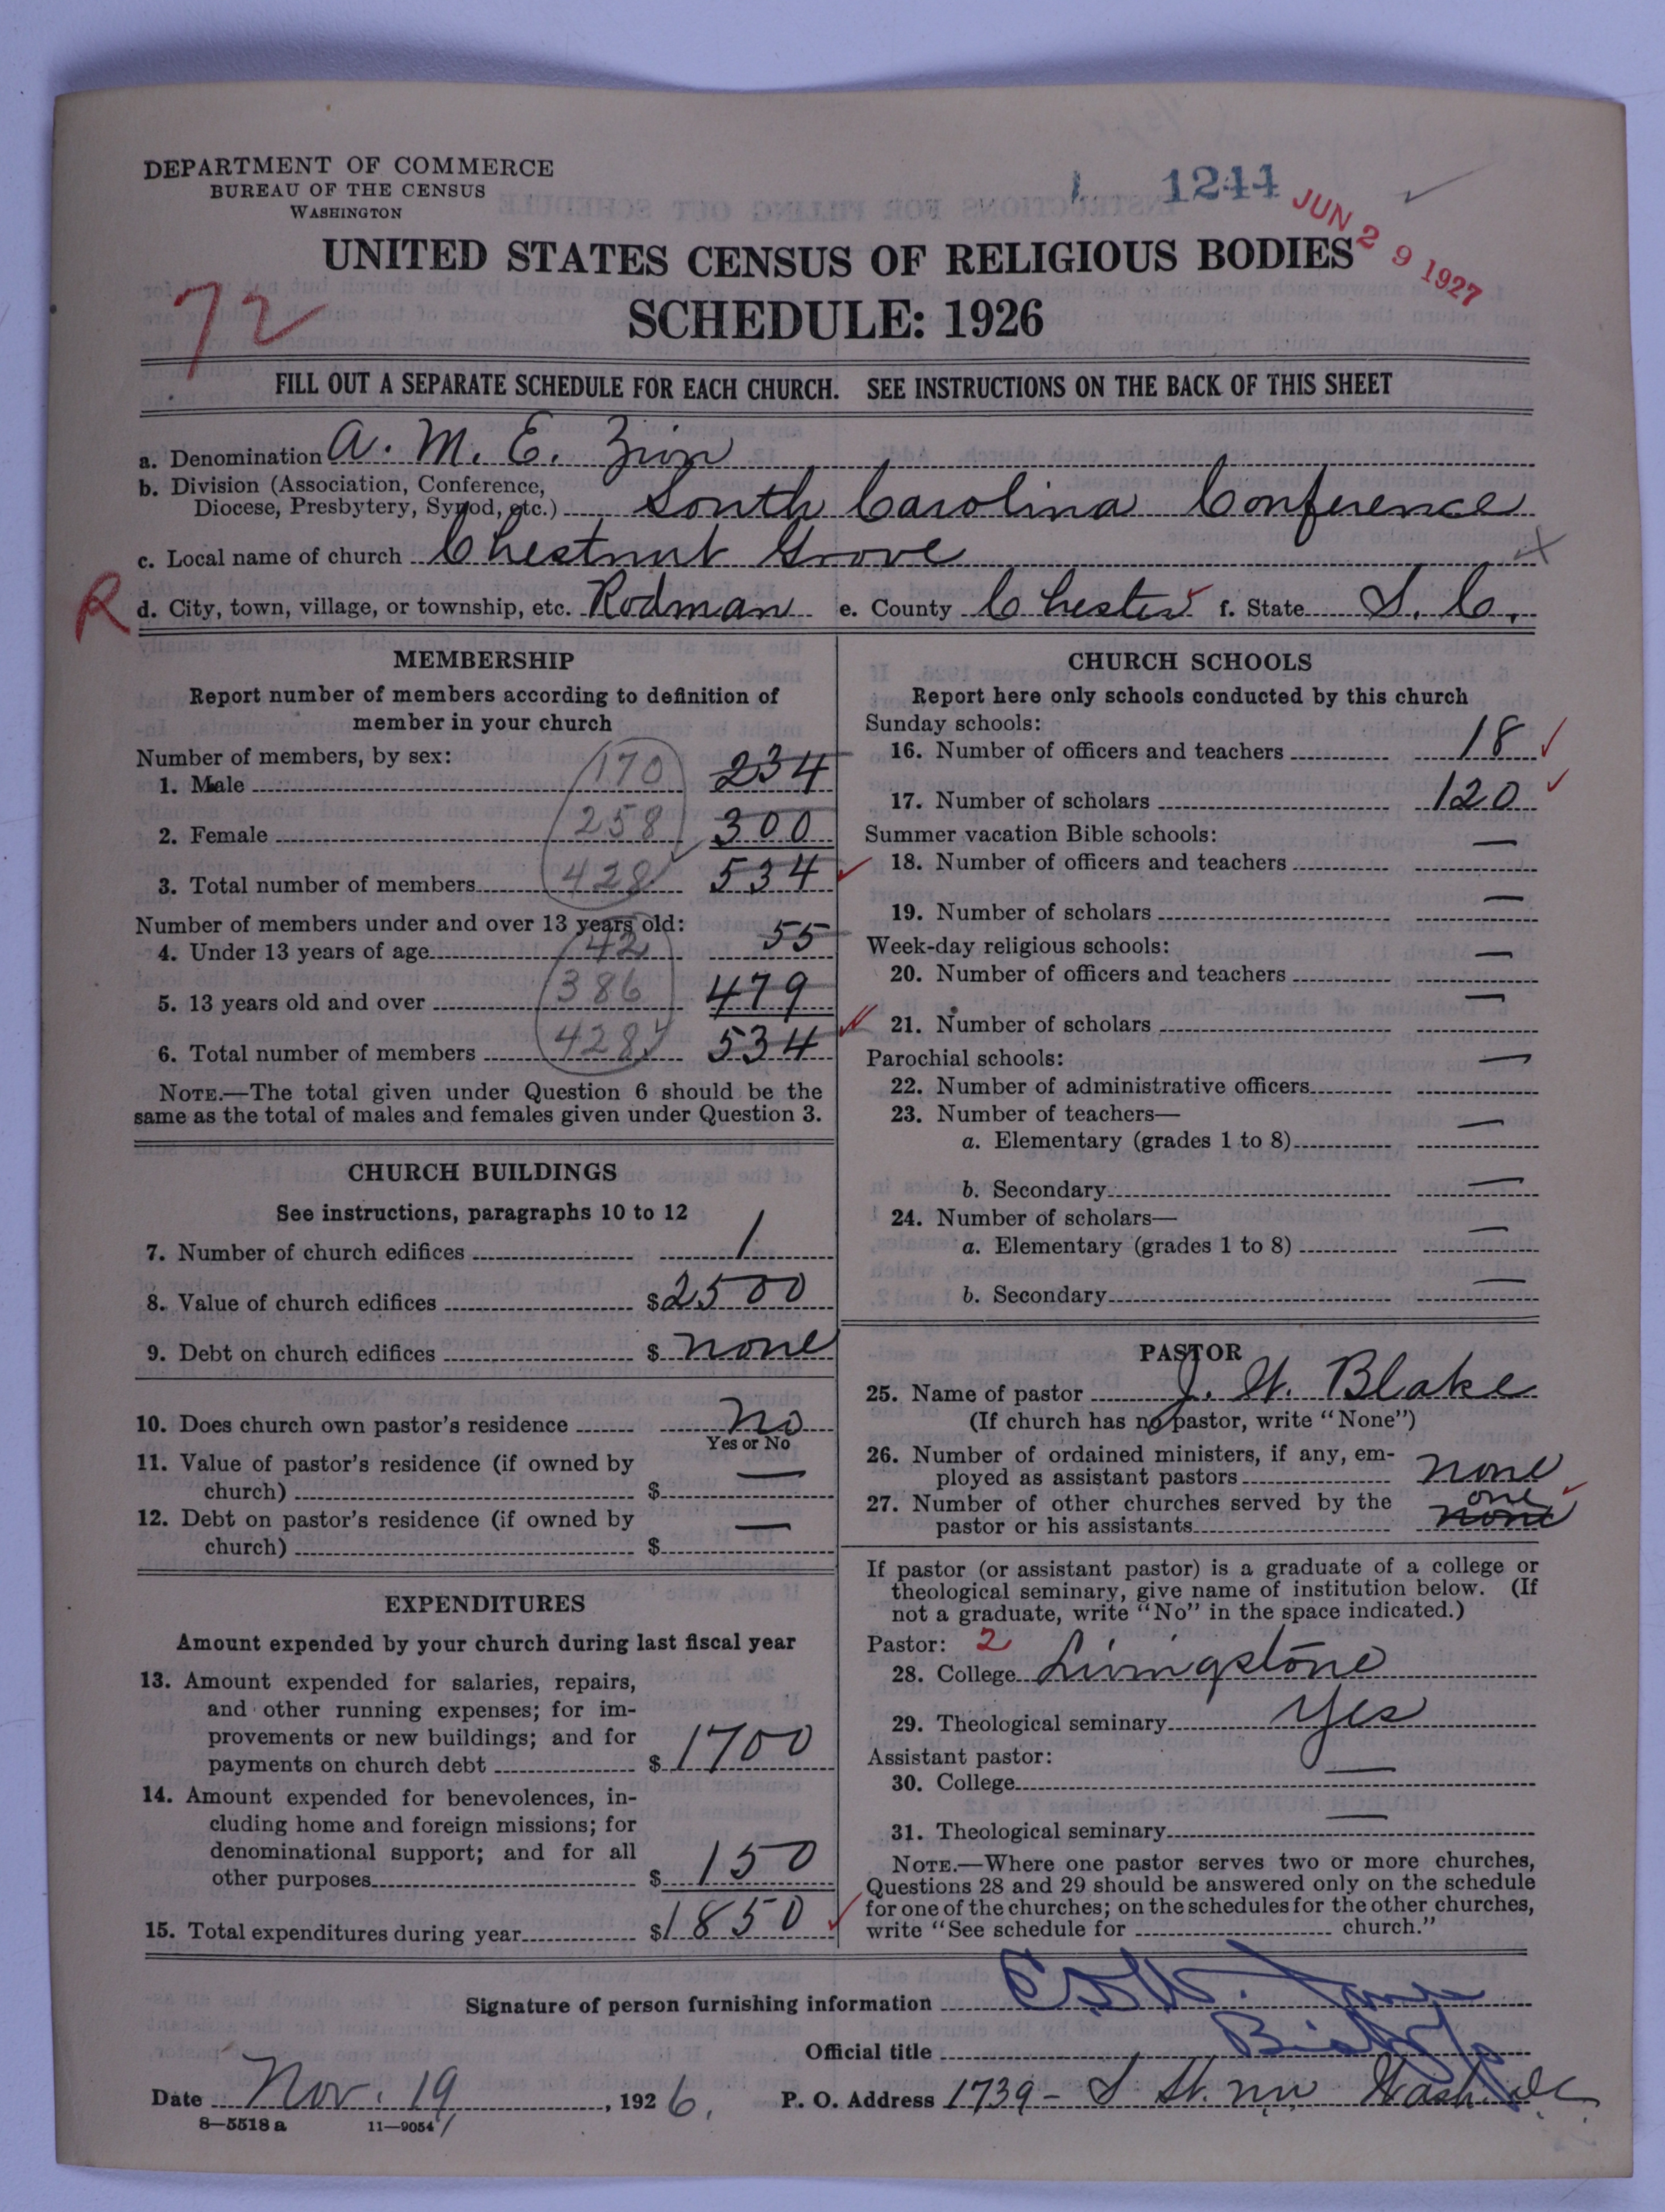 DEPARTMENT OF COMMERCE
BUREAU OF THE CENSUS
WASHINGTON
1244
JUN 29 1927
UNITED STATES CENSUS OF RELIGIOUS BODIES
SCHEDULE: 1926
72
FILL OUT A SEPARATE SCHEDULE FOR EACH CHURCH. SEE INSTRUCTIONS ON THE BACK OF THIS SHEET
a. Denomination A. M. E. Zion
b. Division (Association, Conference,
Diocese, Presbytery, Synod, etc.) South Carolina Conference
c. Local name of church Chestnut Grove
R d. City, town, village, or township, etc. Rodman e. County Chester f. State S. C.
MEMBERSHIP
Report number of members according to definition of
member in your church
Number of members, by sex:
1. Male 170 234
2. Female 258 300
3. Total number of members 428 534
Number of members under and over 13 years old:
4. Under 13 years of age 42 55
5. 13 years old and over 386 479
6. Total number of members 428 534
NOTE.—The total given under Question 6 should be the
same as the total of males and females given under Question 3.
CHURCH BUILDINGS
See instructions, paragraphs 10 to 12
7. Number of church edifices 1
8. Value of church edifices $2500
9. Debt on church edifices $ none
10. Does church own pastor's residence no
Yes or No
11. Value of pastor's residence (if owned by
church) $ —
12. Debt on pastor's residence (if owned by
church) $ —
EXPENDITURES
Amount expended by your church during last fiscal year
13. Amount expended for salaries, repairs,
and other running expenses; for im-
provements or new buildings; and for
payments on church debt $ 1700
14. Amount expended for benevolences, in-
cluding home and foreign missions; for
denominational support; and for all
other purposes $ 150
15. Total expenditures during year $1850
CHURCH SCHOOLS
Report here only schools conducted by this church
Sunday schools:
16. Number of officers and teachers 18
17. Number of scholars 120
Summer vacation Bible schools:
18. Number of officers and teachers —
19. Number of scholars —
Week-day religious schools:
20. Number of officers and teachers —
21. Number of scholars —
Parochial schools:
22. Number of administrative officers —
23. Number of teachers—
a. Elementary (grades 1 to 8) —
b. Secondary —
24. Number of scholars—
a. Elementary (grades 1 to 8) —
b. Secondary —
PASTOR
25. Name of pastor J. W. Blake
(If church has no pastor, write "None")
26. Number of ordained ministers, if any, em-
ployed as assistant pastors none
27. Number of other churches served by the one
pastor or his assistants none
If pastor (or assistant pastor) is a graduate of a college or
theological seminary, give name of institution below. (If
not a graduate, write "No" in the space indicated.)
Pastor: 2
28. College Livingstone
29. Theological seminary Yes
Assistant pastor:
30. College —
31. Theological seminary —
NOTE.—Where one pastor serves two or more churches,
Questions 28 and 29 should be answered only on the schedule
for one of the churches; on the schedules for the other churches,
write "See schedule for church."
Signature of person furnishing information
Official title Bishop
Date Nov. 19, 1926. P. O. Address 1739 - S St. N.W. Wash. D.C.
8—5518 a 11—9054